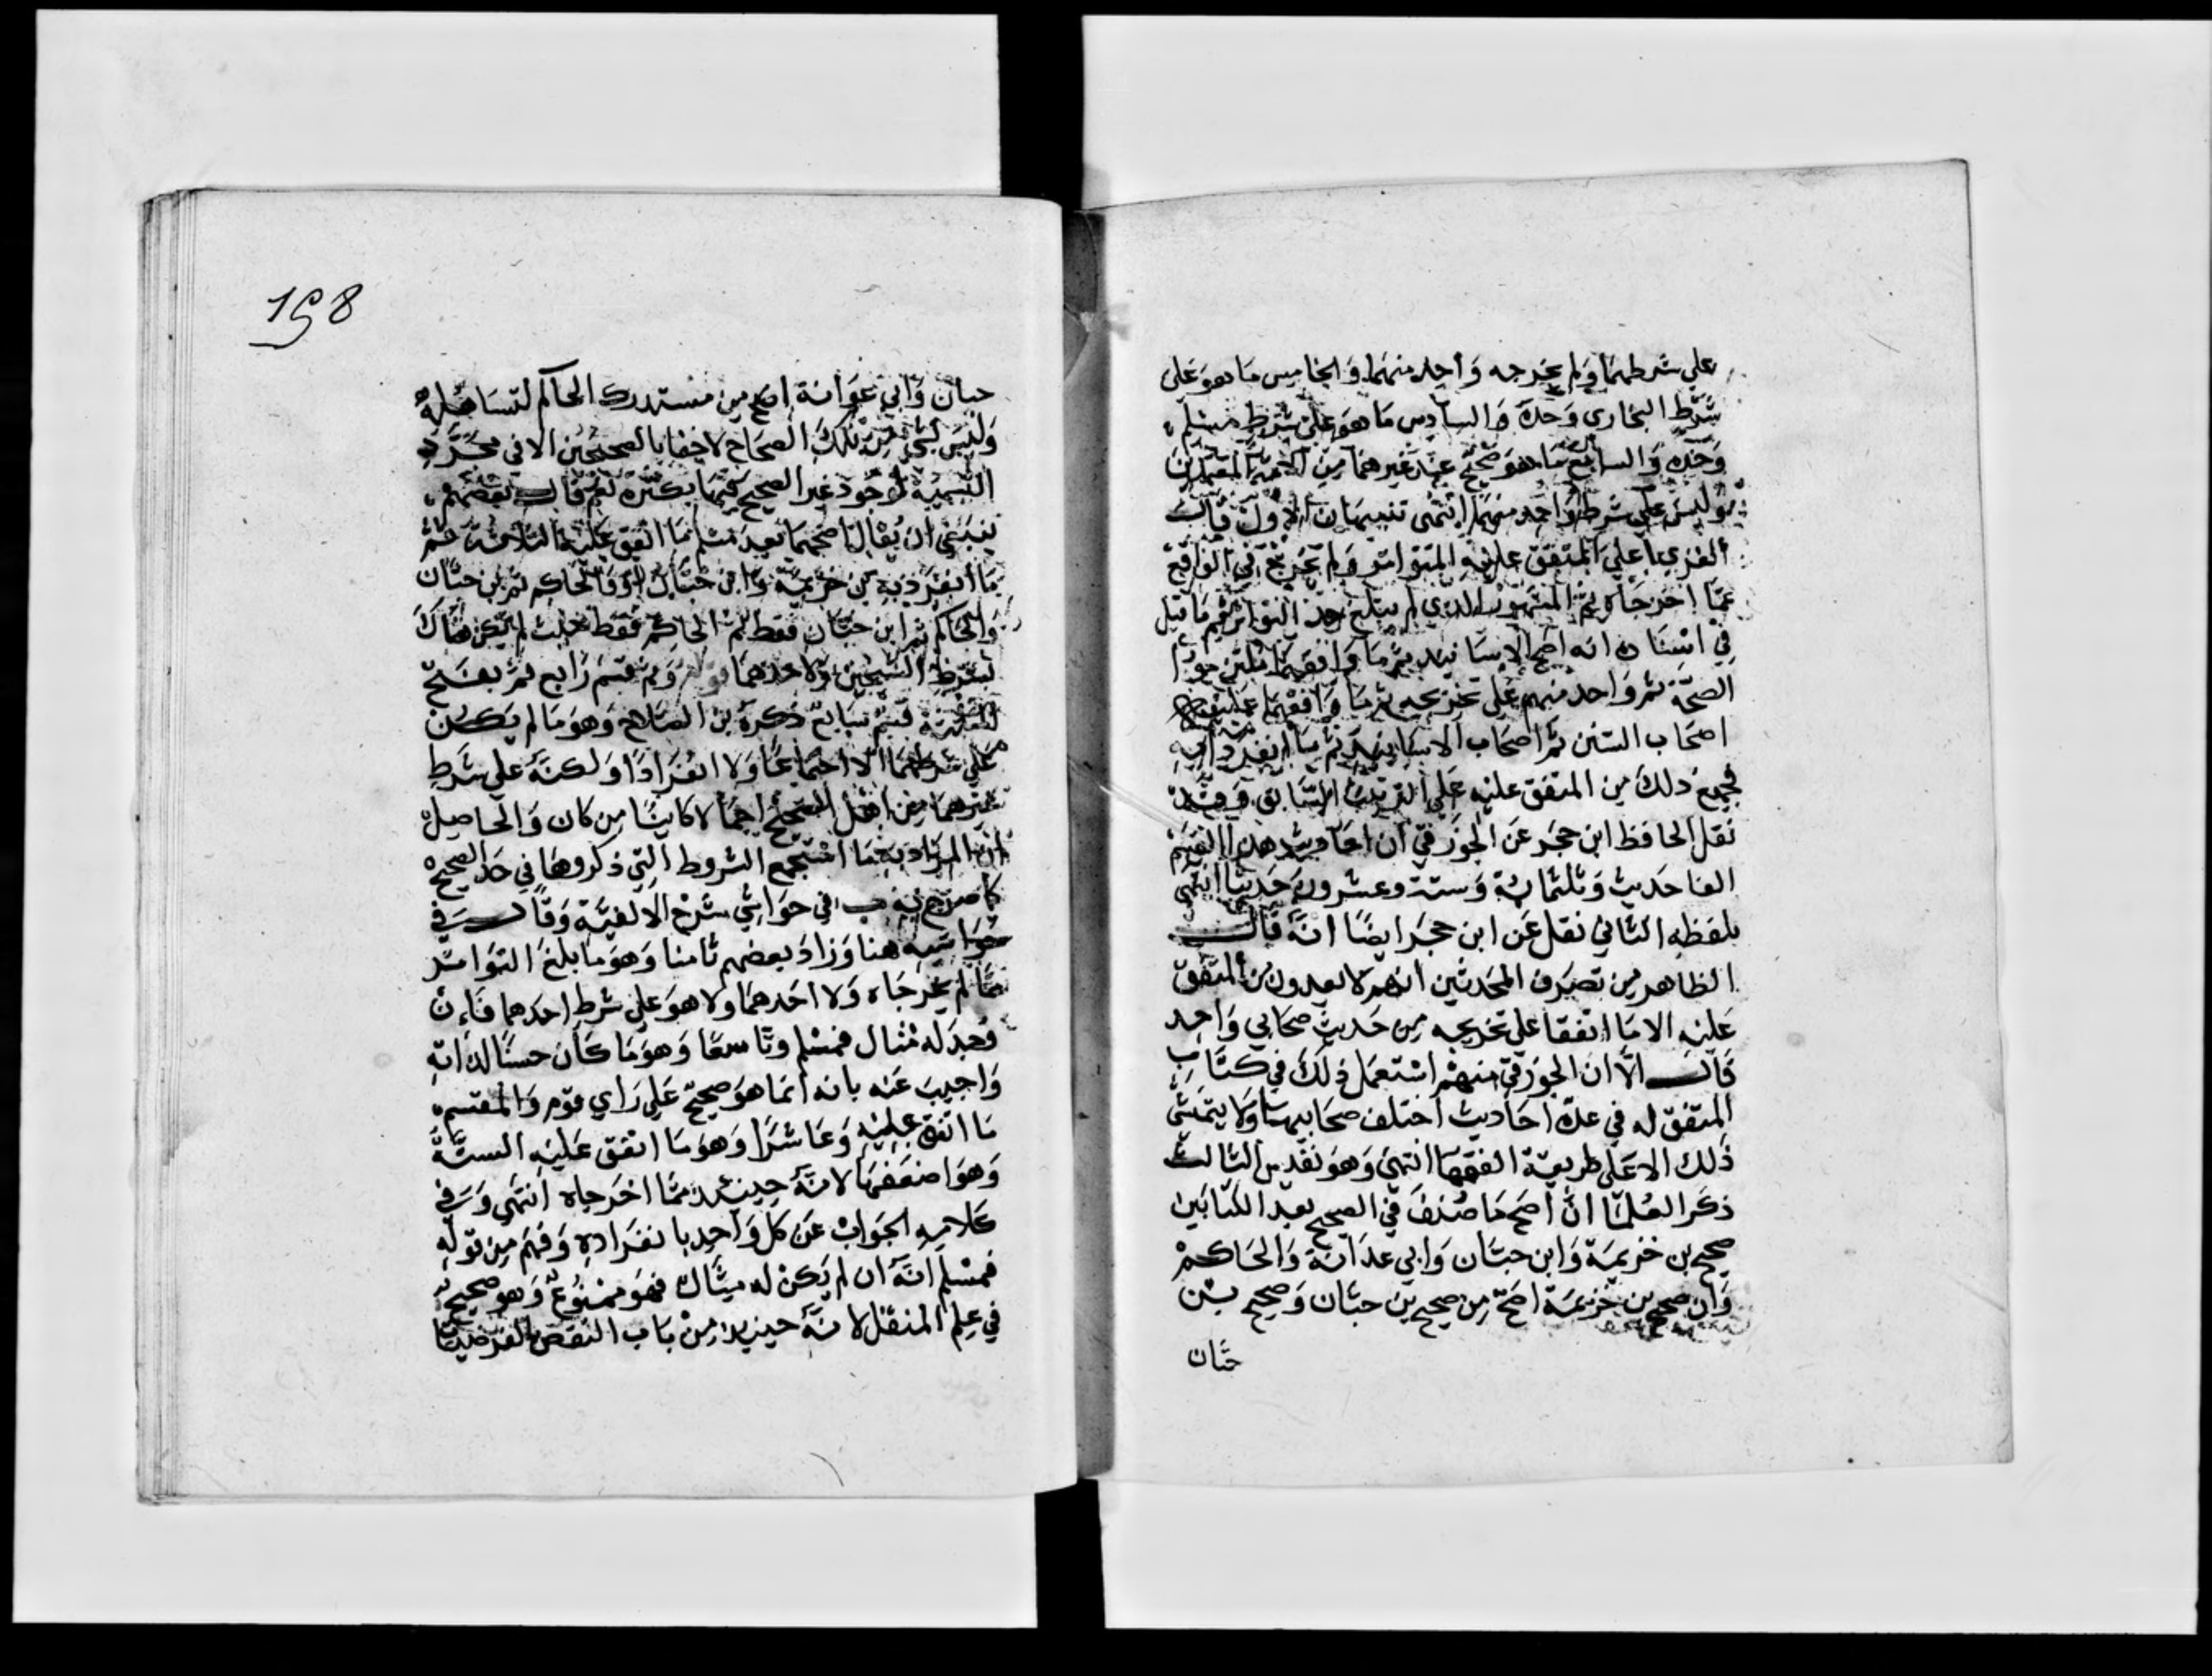 على شرطهما ولم يخرجه واحد منهما والخامس ما هو على
شرط البخارى وحده والسادس ما هو على شرط مسلم
وحده والسابع ما هو صحيح عند غيرهما من الائمة المعتمدين
وليس على شرط واحد منهما انتهى تنبيهان الاول قالت
الغزي اعلى المتفق عليه المتواتر ولم يخرج في الواقع
عما اخرجاه ثم المشهور الذي لم يبلغ حد التواتر ثم ما قيل
في اسناده انه اصح الاسانيد ثم ما وافقهما ملتزموا
الصحة ثم واحد منهم على تخريجه ثم ما وافقهما عليه
اصحاب السنن ثم اصحاب الاسانيد ثم ما انفردا به
فجميع ذلك من المتفق عليه على الترتيب السابق وقد
نقل الحافظ ابن حجر عن الجوزقي ان احاديث هذا القسم
الفا حديث وثلثماية وستة وعشرون حديثا انتهى
بلفظه الثاني نقل عن ابن حجر ايضا انه قال
الظاهر من تصرف المحدثين انهم لا يعدون من المتفق
عليه الا ما اتفقا على تخريجه من حديث صحابي واحد
قال الا ان الجوزقي منهم استعمل ذلك في كتاب
المتفق له في عدة احاديث اختلف صحابيها ولا يتمشى
ذلك الا على طريقة الفقها انتهى وهو نفيس الثالث
ذكر العلما ان اصح ما صنف في الصحيح بعد الكتابين
صحيح بن خزيمة وابن حبان وابي عوانة والحاكم
وان صحيح بن خزيمة اصح من صحيح بن حبان وصحيح بن
حبان
198
حبان وابي عوانة اصح من مستدرك الحاكم لتساهله
وليس لشئ من تلك الصحاح لاخفا بالصحيحين الا في مجرد
التسمية لوجود غير الصحيح فيها بكثرة نعم قال بعضهم
ينبغي ان يقال اصحهما بعد مسلم ما اتفق عليه الثلاثة ثم
ما انفرد به بن خزيمة وابن حبان او والحاكم ثم بن حبان
والحاكم ثم ابن حبان فقط ثم الحاكم فقط حيث لم يكن هناك
بشرط الشيخين ولا احدهما وثم قسم رابع ثم بفتح
المثلثة قسم سابع ذكره بن الصلاح وهو ما لم يكن
على شرطهما الا اجتماعا ولا انفرادا ولكنه على شرط
غيرهما من اهل الصحيح اجمالا كائنا من كان والحاصل
ان المراد به ما استجمع الشروط التي ذكروها في حد الصحيح
كما صرح به في حواشي شرح الالفية وقال في
حواشيه هنا وزاد بعضهم ثامنا وهو ما بلغ التواتر
مما لم يخرجاه ولا احدهما ولا هو على شرط احدهما فان
وجد له مثال فمسلم وتاسعا وهو ما كان حسنا لذاته
واجيب عنه بانه انما هو صحيح على راي قوم والمقتسم
ما اتفق عليه وعاشرا وهو ما اتفق عليه الستة
وهو اضعفها لانه حينئذ مما اخرجاه انتهى وفي
كلامه الجواب عن كل واحد بانفراده وفهم من قوله
فمسلم انه ان لم يكن له مثال فهو ممنوع وهو صحيح
في علم المنقل لانه حينئذ من باب النقض بالفرضيات